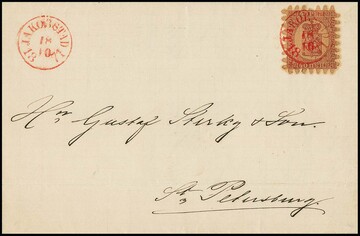 JAKOBSTAD
18
10
18 71
JAKOB
Hrn Gustaf Sterky & Son.
St Petersburg.